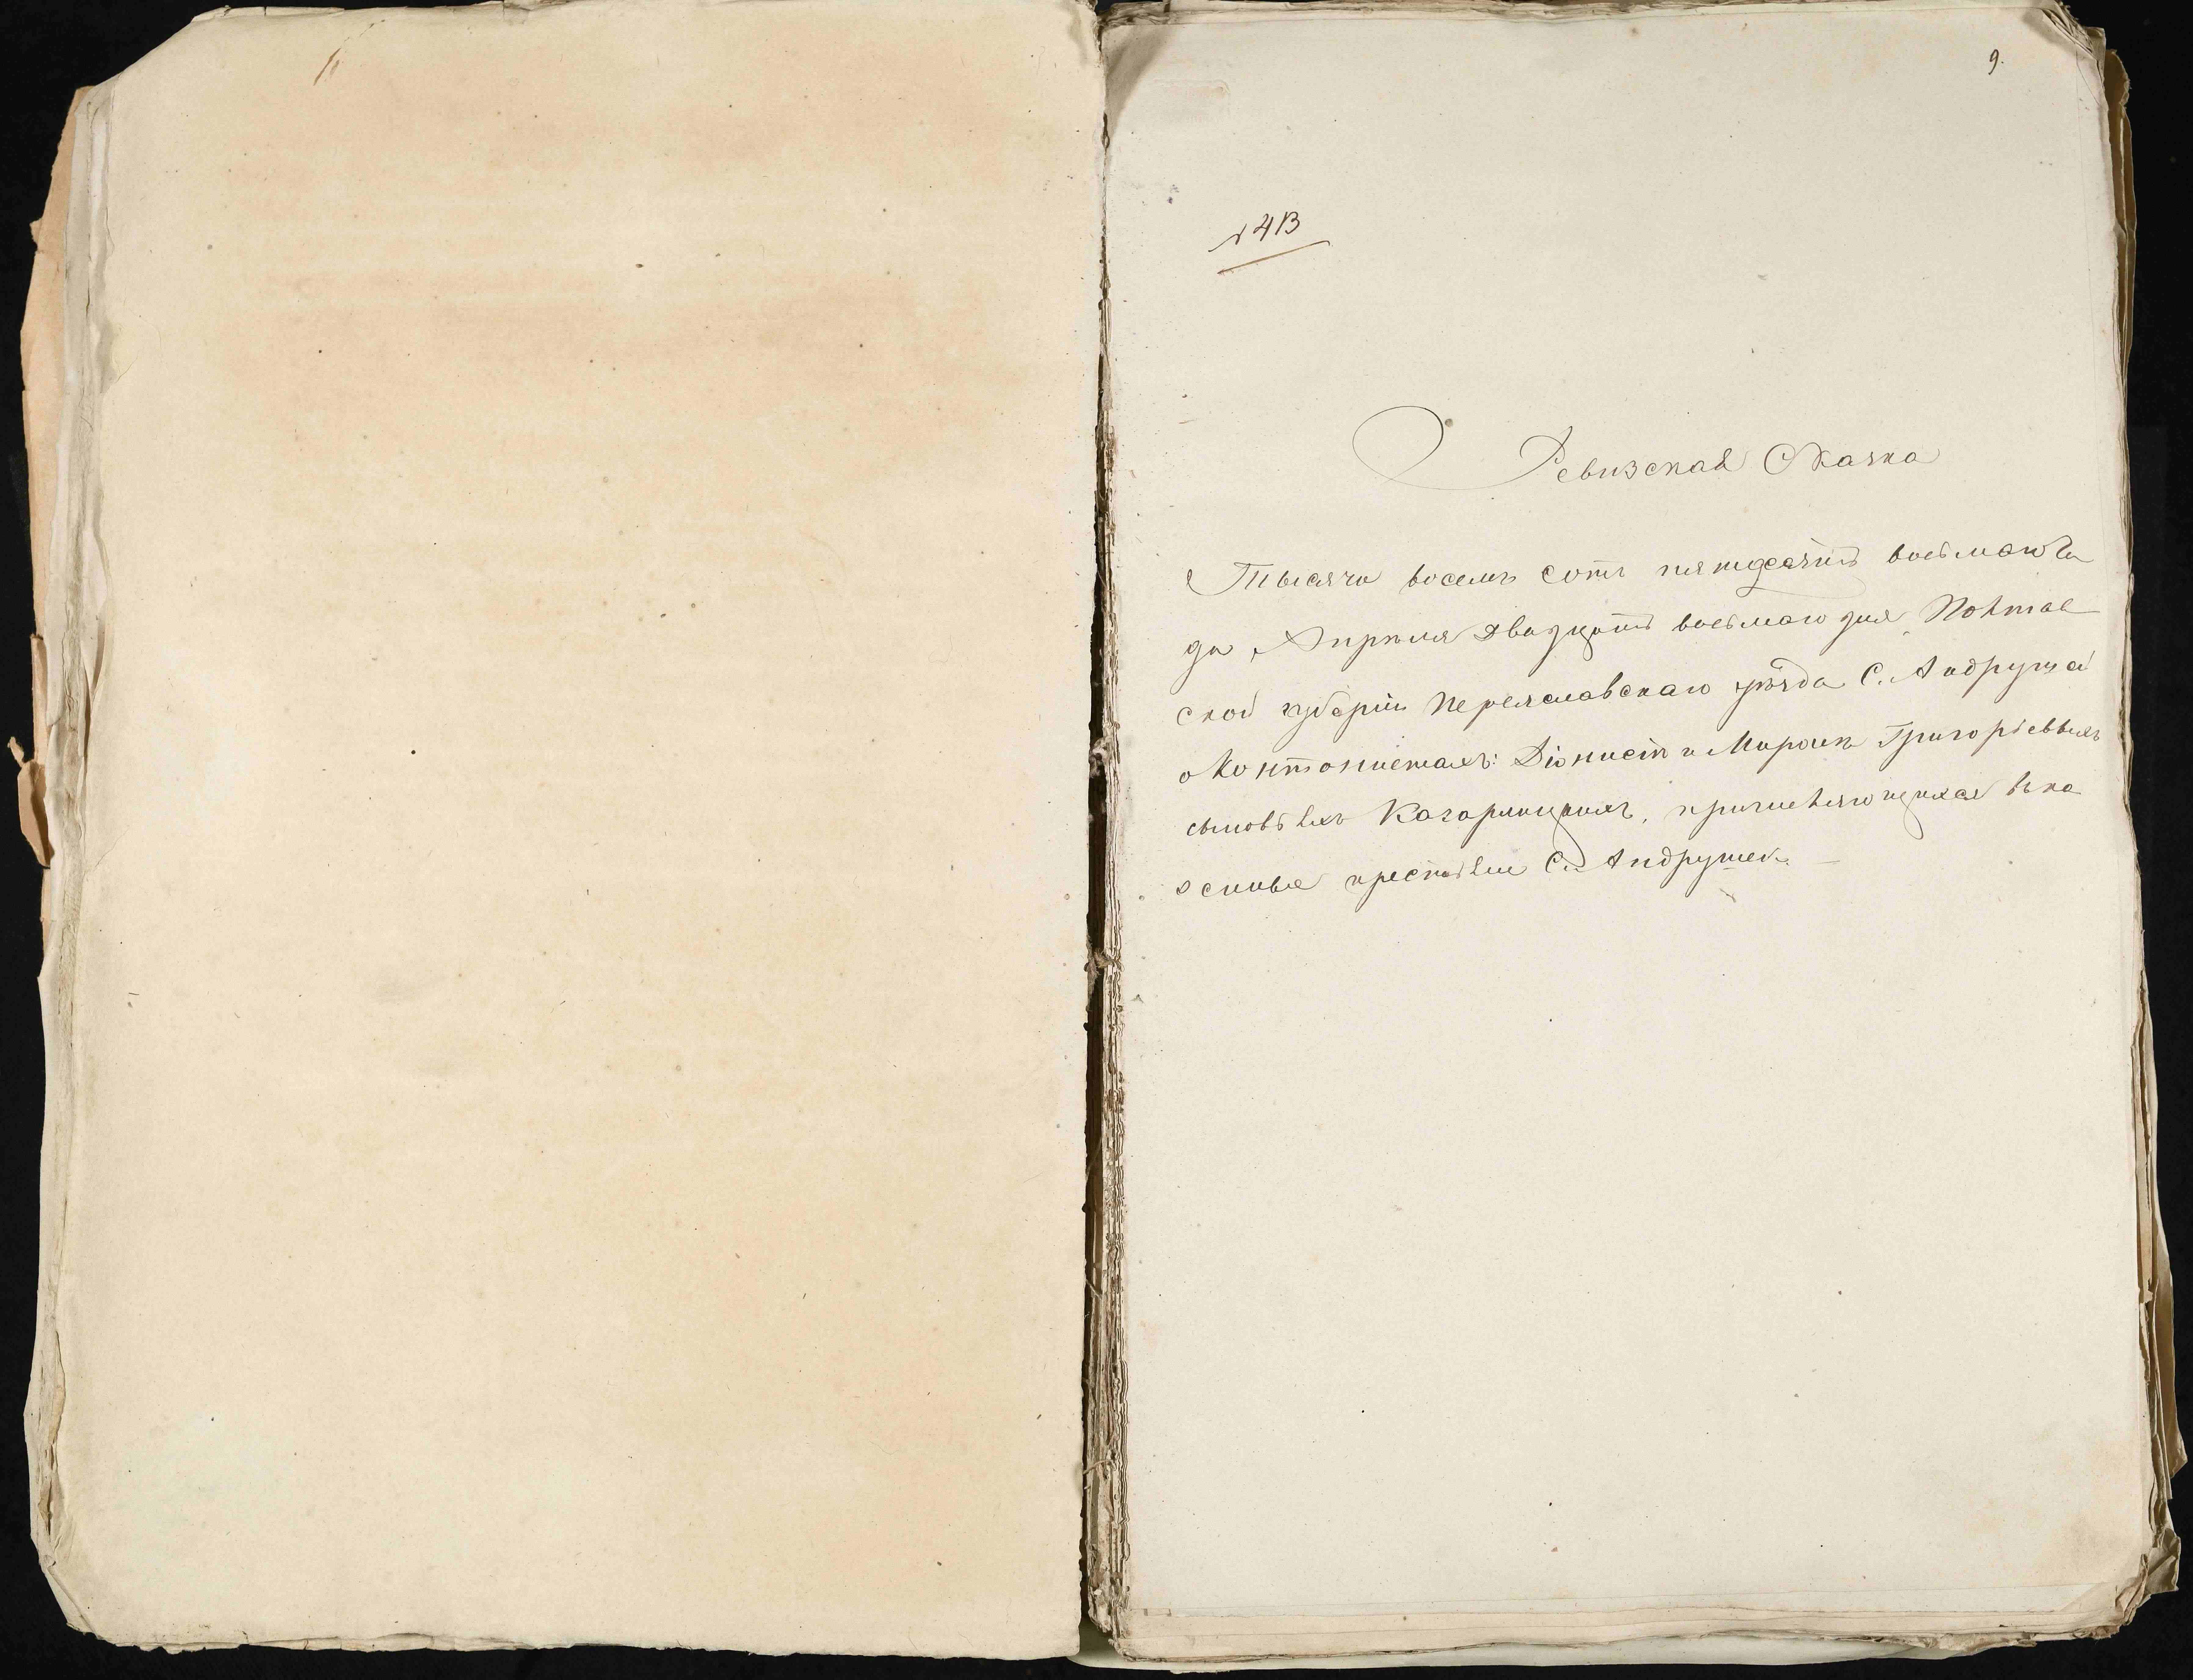 9.
№ 413
Ревизская Сказка
Тысяча восемь сотъ пятдесятъ восьмого го
да, Апрѣля двадцать восьмаго дня, Полтав
ской губерніи Переяславскаго уѣзда С. Андруша
о Кантонистахъ: Діонисіи и Миронѣ Григорьевыхъ
сыновьяхъ Кагарлицкихъ, причисляющихся въ ка
зенные крестьяне С. Андрушей. —